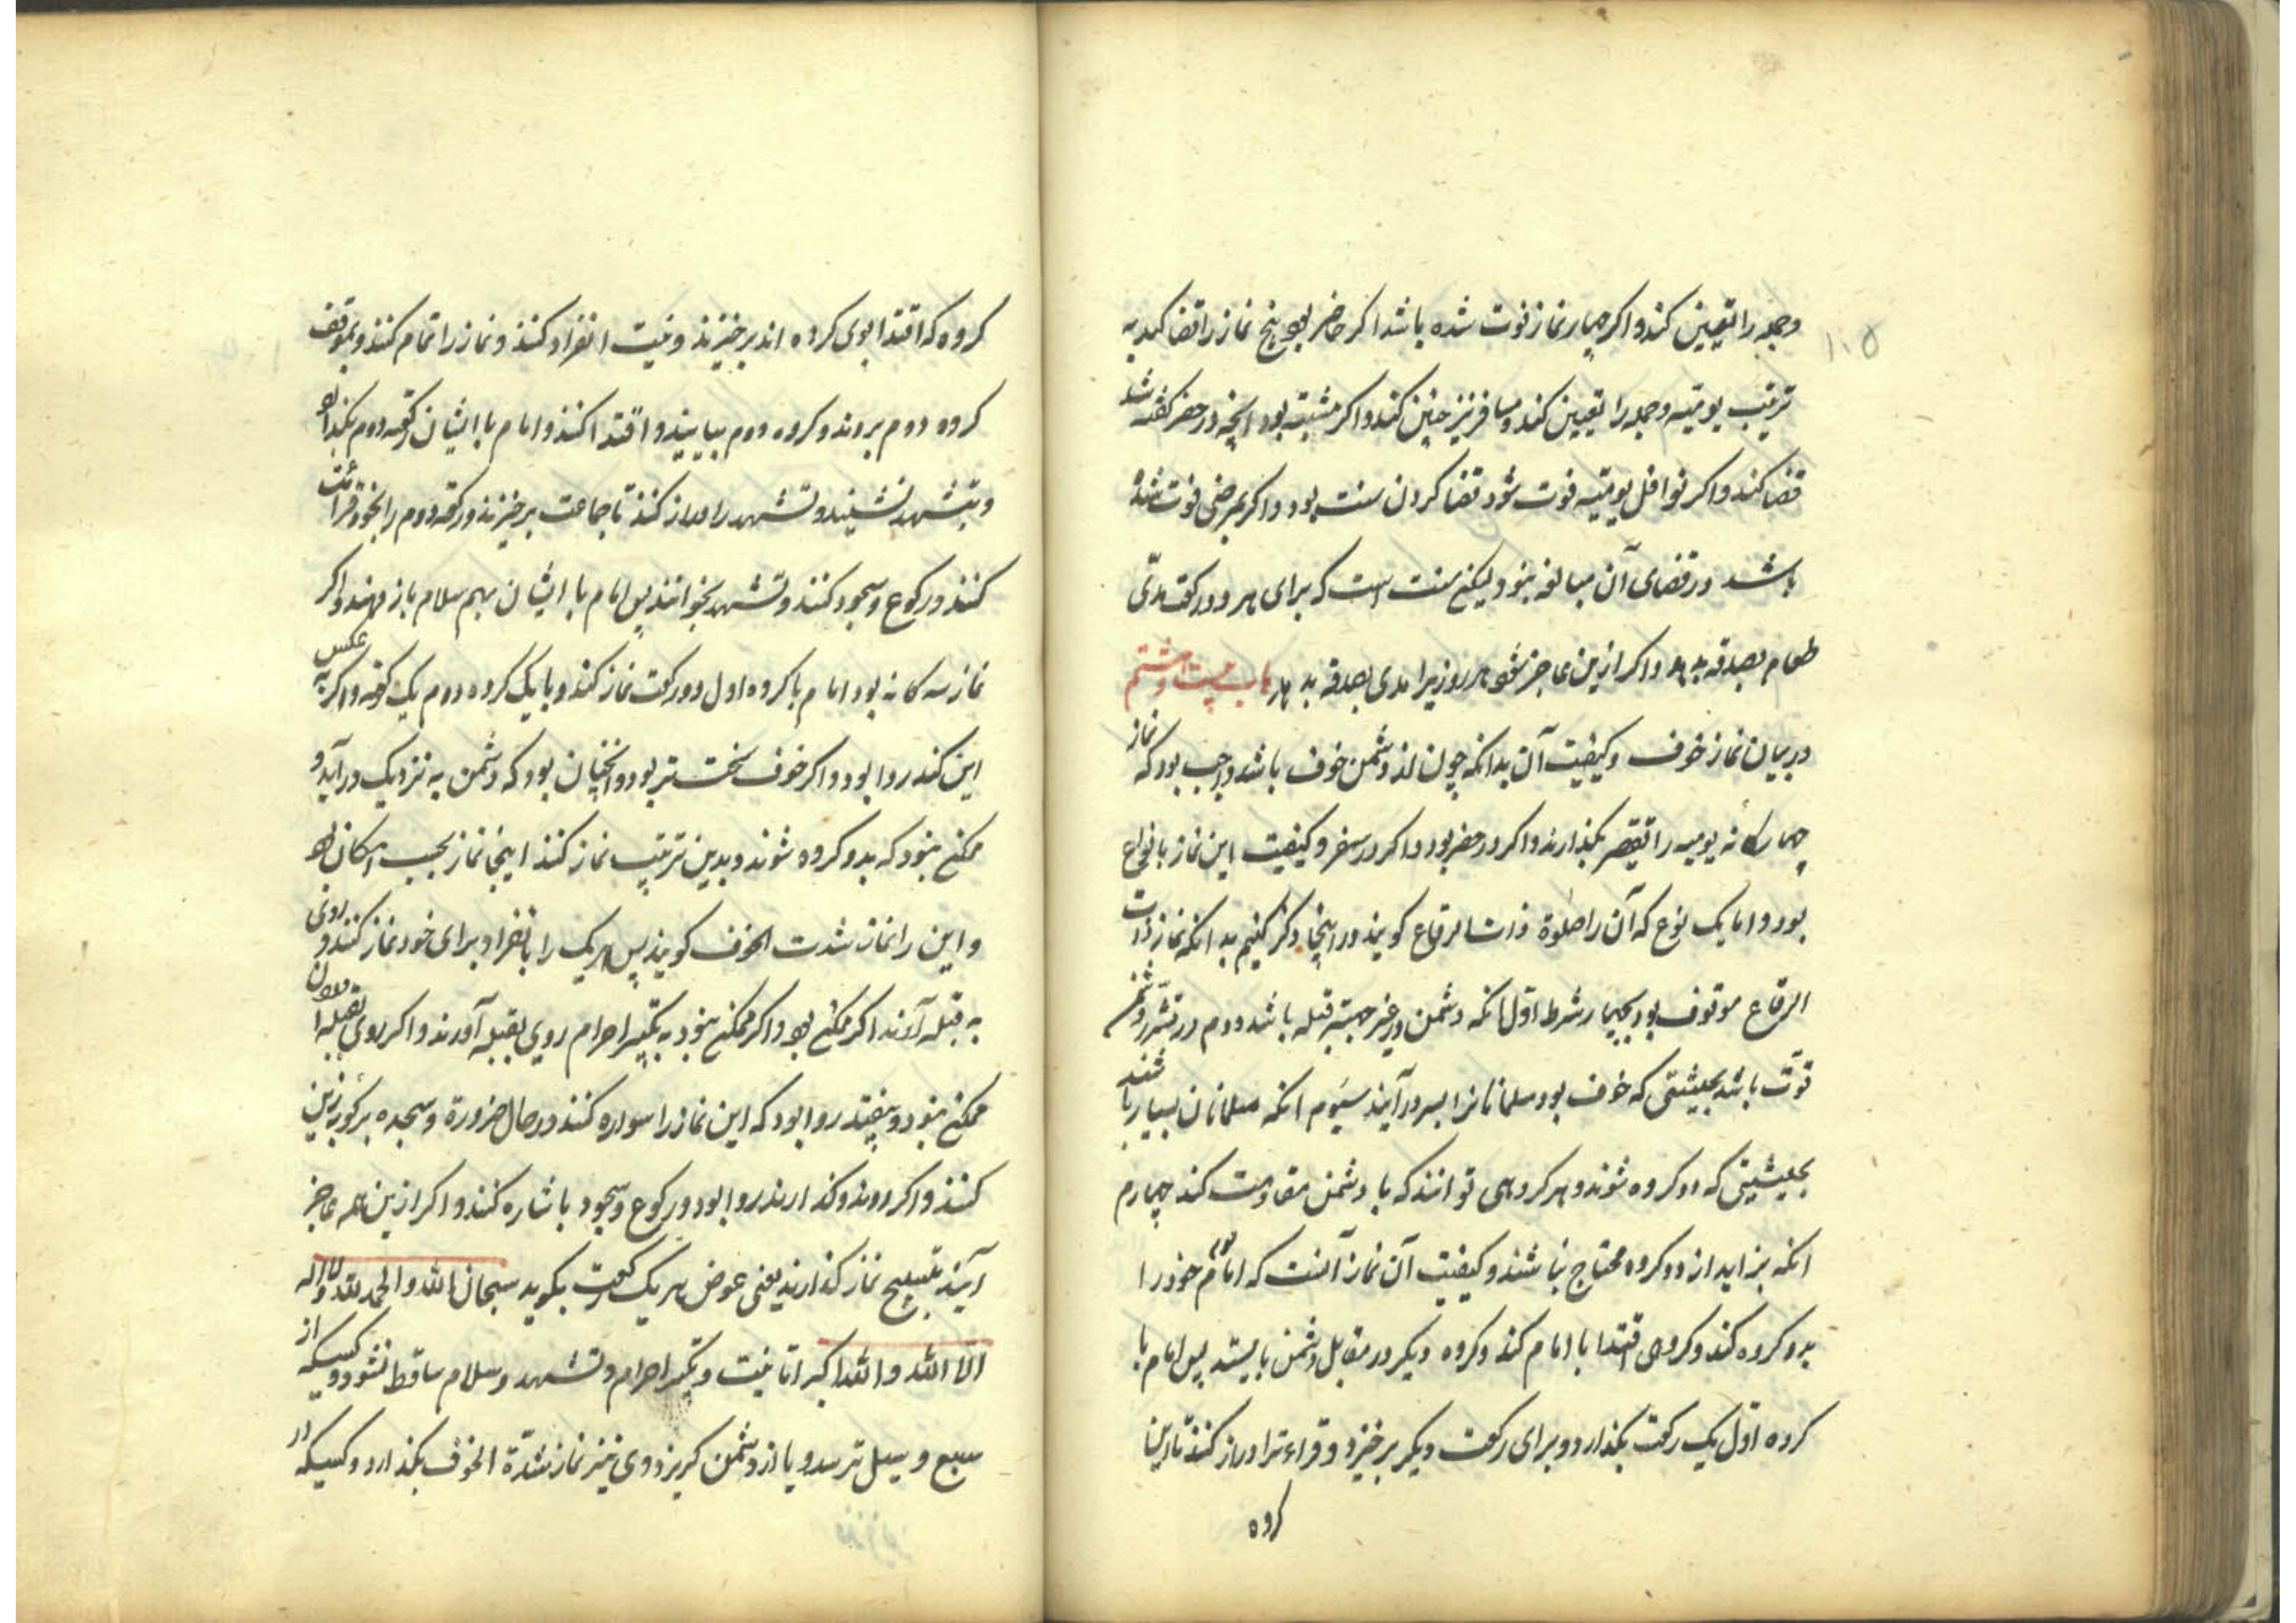 ۱۰۵
وجمعه را تعیین کند و اکر چهار نماز فوت شده باشد اکر حاضر بود پنج نماز را قضا کند به
ترتیب یومیّه وجمعه را تعیین کند و مسافر نیز چنین کند و اکر مشتبه بود انچه در حضر کفته شد
قضا کند و اکر نوافل یومیّه فوت شود قضا کردن سنت بود و اکر بمرضی فوت شده
باشد در قضای آن مبالغه نبود ولیکن سنت است که برای هر دو رکعت مدّی
طعام بصدقه بدهد و اکر ازین عاجز شود هر روز یرا مدی بصدقه بدهد باب بیست و هشتم
در بیان نماز خوف و کیفیت آن بدانکه چون از دشمن خوف باشد واجب بود که نماز
چهارکانه یومیه را تقصیر بکذارند و اکر در حضر بود و اکر در سفر و کیفیت این نماز بانواع
بود و اما یک نوع که آن را صلوة ذات الرقاع کویند در اینجا ذکر کنیم بدانکه نماز ذات
الرقاع موقوف بود بچهار شرط اوّل انکه دشمن در غیر جهة قبله باشد دوم در دشمن
قوّت باشد بحیثیتی که خوف بود مسلمانانرا بسر درآیند سیّوم انکه مسلمانان بسیار باشند
بحیثیتی که دو کروه شوند و هر کروهی توانند که با دشمن مقاومت کند چهارم
انکه بزاید از دو کروه محتاج نباشند و کیفیت آن نماز آنست که امام قوم خود را
بدو کروه کند و کروهی اقتدا با امام کند و کروه دیکر در مقابل دشمن بایستد پس امام با
کروه اوّل یک رکعت بکذارد و برای رکعت دیکر برخیزد و قراءت را دراز کند تا این
کروه
کروه که اقتدا بوی کرده اند برخیزند و نیت انفراد کنند و نماز را تمام کنند و بموقف
کروه دوم بروند و کروه دوم بیایند و اقتدا کنند و امام با ایشان رکعه دوم بکذارد
و بتشهد نشیند و تشهد را دراز کند تا جماعت برخیزند و رکعه دوم را بخود قرائت
کنند و رکوع و سجود کنند و تشهد بخوانند پس امام با ایشان بهم سلام باز دهند و اکر
نماز سه کانه بود امام با کروه اول دو رکعت نماز کند و با یک کروه دوم یک رکعه و اکر به عکس
این کند روا بود و اکر خوف سخت تر بود و انچنان بود که دشمن به نزدیک درآید و
ممکن نبود که بدو کروه شوند و بدین ترتیب نماز کنند اینجا نماز بحسب امکان بود
و این را نماز شدت الخوف کویند پس هر یک را بانفراد برای خود نماز کنند و روی
به قبله آورند اکر ممکن بود و اکر ممکن نبود به تکبیر احرام روی بقبله آورند و اکر روی بقبله آوردن
ممکن نبود و بیفتد روا بود که این نماز را سواره کنند در حال ضرورة و سجده بر کوهه زین
کنند و اکر دوند و کذارند روا بود و رکوع و سجود باشاره کنند و اکر ازین همه عاجز
آیند بتسبیح نماز کذارند یعنی عوض هر یک رکعت بکوید سبحان الله والحمد لله ولا اله
الا الله والله اکبر اما نیت و تکبیر احرام و تشهد و سلام ساقط نشود و کسیکه از
سبع و سیل ترسد و یا از دشمن کریزد وی نیز نماز شدّة الخوف بکذارد و کسیکه در